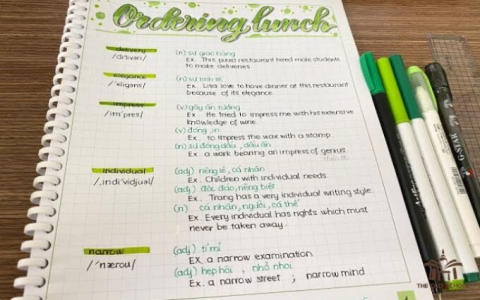 Ordering lunch
delivery
/dɪˈlɪvəri/
(n) sự giao hàng
Ex. This pizza restaurant hired male students
to make deliveries.
elegance
/ˈeligəns/
(n) sự tinh tế
Ex. Lisa love to have dinner at this restaurant
because of its elegance.
impress
/imˈpres/
(v) gây ấn tượng
Ex. He tried to impress me with his extensive
knowledge of wine.
(v) đóng, in
Ex. to impress the wax with a stamp.
(n) sự đóng dấu, dấu ấn
Ex. a work bearing an impress of genius
individual
/ˌindiˈvidjuəl/
(adj) riêng lẻ, cá nhân
Ex. Children with individual needs.
(adj) độc đáo, riêng biệt
Ex. Trang has a very individual writing style.
(n) cá nhân, người, cá thể
Ex. Every individual has rights which must
never be taken away.
narrow
/ˈnærou/
(adj) tỉ mỉ
EX. a narrow examination
(adj) hẹp hòi, nhỏ nhoi
Ex. a narrow street ; narrow mind
THE